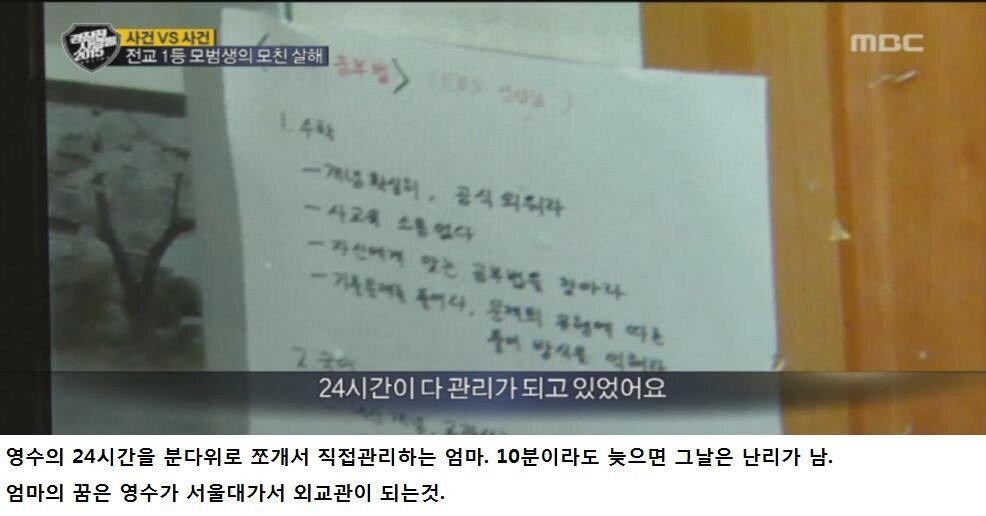 경찰청 사람들 2015
사건 VS 사건
전교 1등 모범생의 모친 살해
MBC
공부법> (EBS 선생님)
1. 수학
- 개념확실히, 공식 외워라
- 사교육 소용없다
- 자신에게 맞는 공부법을 찾아라
- 기출문제를 풀어라, 문제의 유형에 따른
풀이 방식을 익혀라
2. 국어
24시간이 다 관리가 되고 있었어요
영수의 24시간을 분다위로 쪼개서 직접관리하는 엄마. 10분이라도 늦으면 그날은 난리가 남.
엄마의 꿈은 영수가 서울대가서 외교관이 되는것.